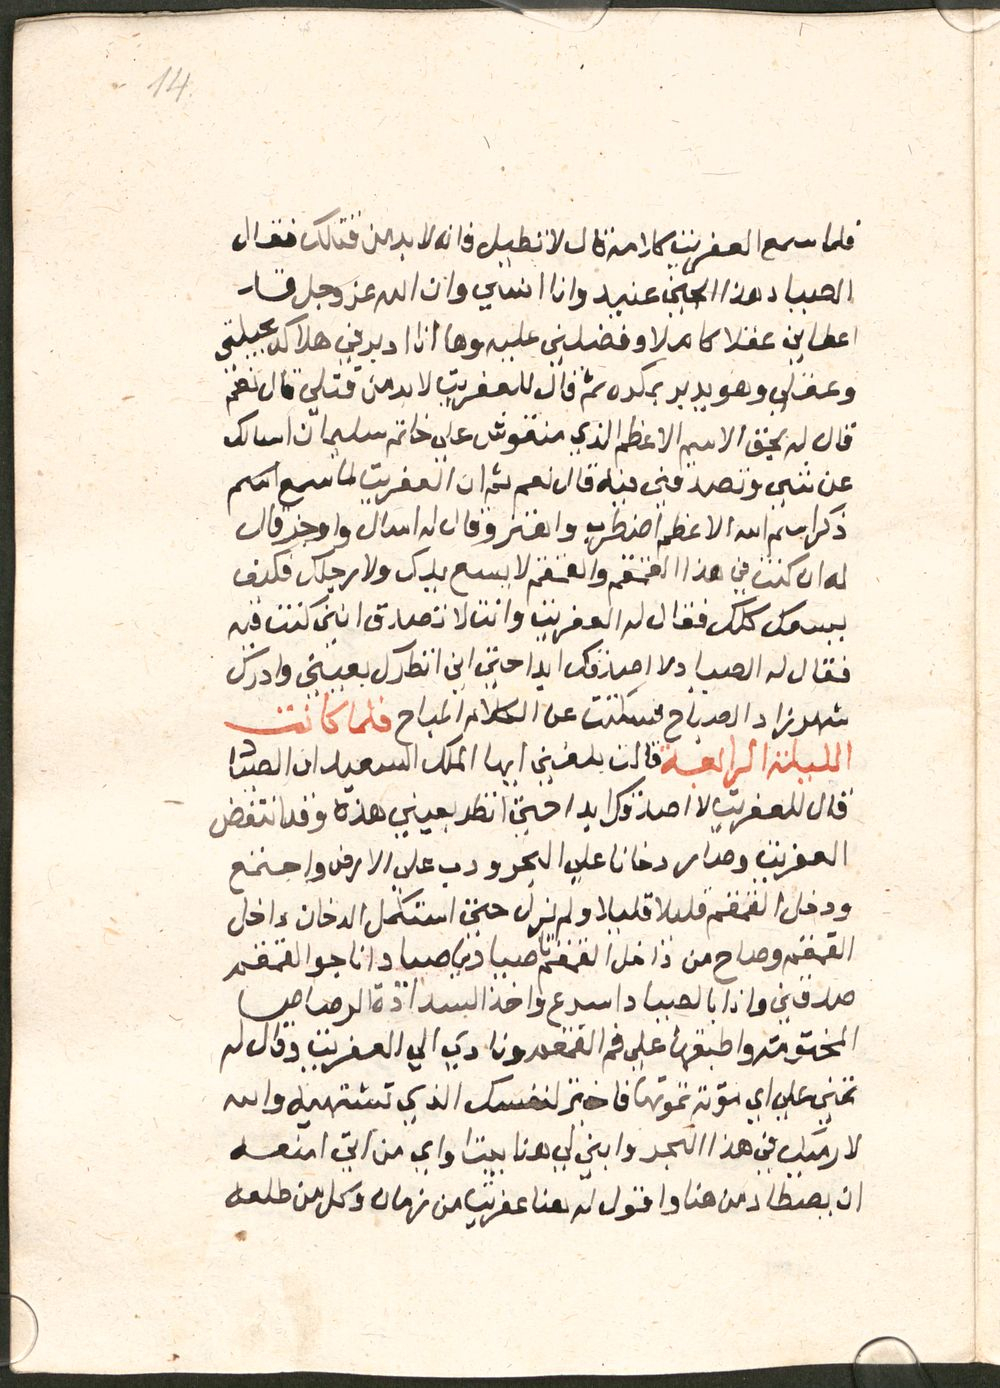 14
فلما سمع العفريت كلامه قال لا تطيل فانه لا بد من قتالك فقال
الصياد هذا الجني عنيد وانا انسي وان الله عز وجل قد
اعطاني عقلا كاملا وفضلني عليه وها انا ادبر في هلاكه بحيلتي
وعقلي وهو يدبر بمكده ثم قال للعفريت لا بد من قتلي قال نعم
قال له بحق الاسم الاعظم الذي منقوش علي خاتم سليمان اسالك
عن شي وتصدقني فيه قال نعم ثم ان العفريت لما سمع اسم
ذكر اسم الله الاعظم اضطرب واهتز وقال له اسال واوجز قال
له ان كنت في هذا القمقم والقمقم لا يسع يدك ولا رجلك فكيف
يسعك كلك فقال له العفريت وانت لا تصادق انني كنت فيه
فقال له الصياد لا اصدقك ابدا حتي اني انظرك بعيني وادرك
شهرزاد الصباح فسكتت عن الكلام المباح فلما كانت
الليلة الرابعة قالت بلغني ايها الملك السعيد ان الصياد
قال للعفريت لا اصدقك ابدا حتي انظر بعيني هذه وقد انتفض
العفريت وصار دخانا علي البحر ودب علي الارض واجتمع
ودخل القمقم قليلا قليلا ولم يزل حتي استكمل الدخان داخل
القمقم وصاح من داخل القمقم يا صياد في يا صياد انا جوا القمقم
صدقني واذا بالصياد اسرع واخذ السدادة الرصاص
المختومة واطبقها علي فم القمقم ونادي الي العفريت وقال له
تمني علي اي موتة تموتها فاختر لنفسك الذي تشتهيه والله
لا رميتك في هذا البحر وابني لي هنا بيتا واي من اتي امنعه
ان يصطاد من هنا واقول له هنا عفريت من زمان وكل من طلعه